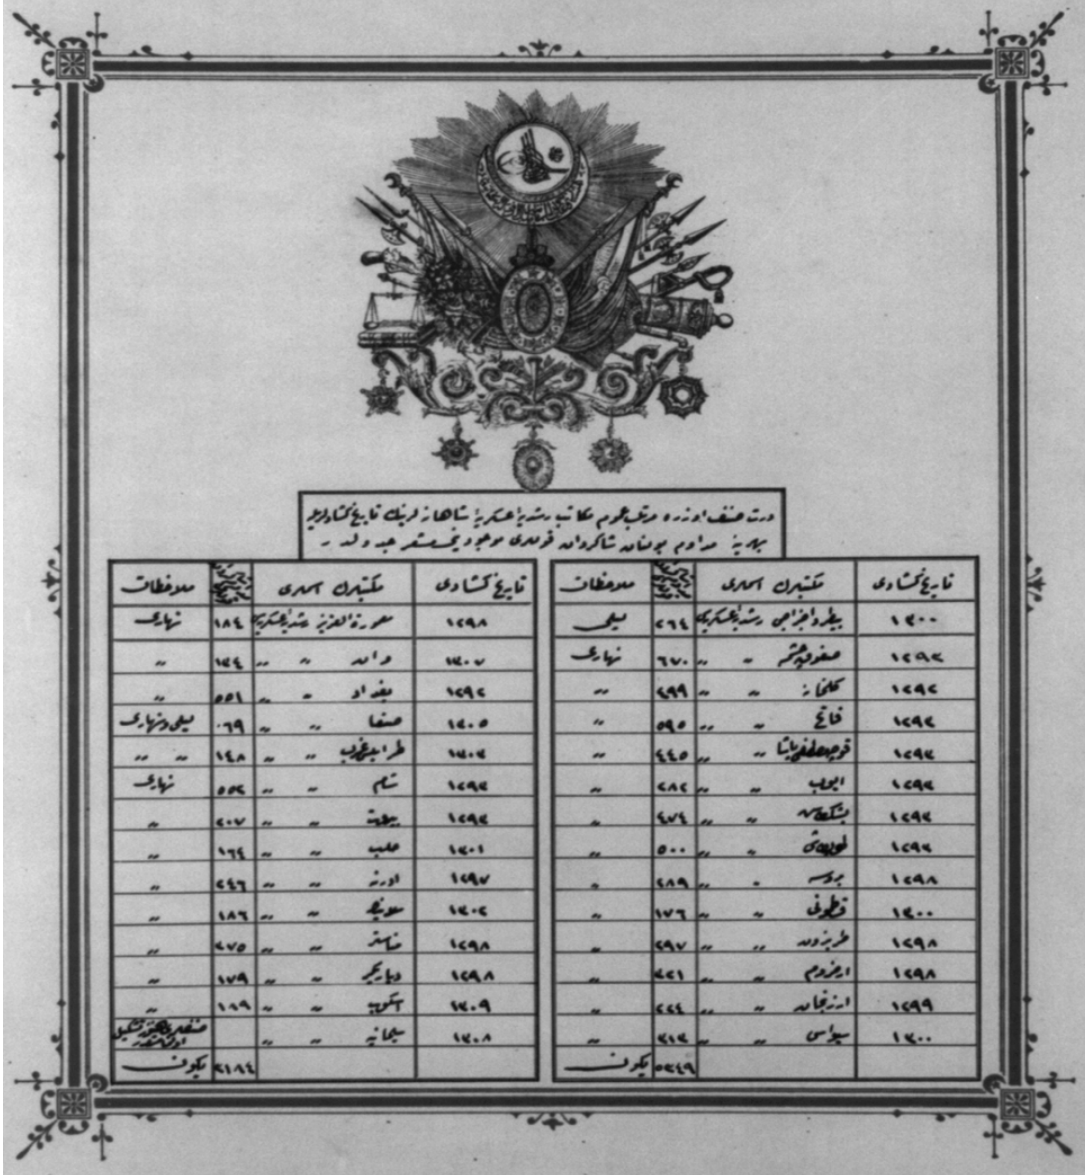 درت صنف اوزره مرتب عموم مكاتب رشديۀ عسكريۀ شاهانه لرينك تاريخ كشادلريله
بهرينه مداوم بولنان شاكردان قوۀ موجوده سنى مشعر جدولدر
تاريخ كشادى مكتبلرك اسملرى ملاحظات
١٣٠٠ بيطر واجزاجى رشديۀ عسكريسى ٢٦٤ ليلى
١٢٩٢ صغوق چشمه " " ٦٧٠ نهارى
١٢٩٢ كلخانه " " ٢٩٩ "
١٢٩٢ فاتح " " ٥٩٥ "
١٢٩٢ قوجه مصطفى پاشا " " ٤٤٥ "
١٢٩٢ ايوب " " ٢٨٢ "
١٢٩٢ بشكطاش " " ٤٧٤ "
١٢٩٢ طوپطاشى " " ٥٠٠ "
١٢٩٨ بروسه " " ٢٨٩ "
١٣٠٠ قسطمونى " " ١٧٦ "
١٢٩٨ طربزون " " ٢٩٧ "
١٢٩٨ ارضروم " " ٢٢١ "
١٢٩٩ ارزنجان " " ٢٢٤ "
١٣٠٠ سيواس " " ٣١٣ "
٥٢٤٩ يكون
تاريخ كشادى مكتبلرك اسملرى ملاحظات
١٢٩٨ معمورة العزيز رشديۀ عسكريسى ١٨٤ نهارى
١٣٠٧ وان " " ١٣٤ "
١٢٩٢ بغداد " " ٥٥١ "
١٣٠٥ صنعا " " ٠٦٩ ليلى ونهارى
١٣٠٣ طرابلس غرب " " ١٤٨ " "
١٢٩٢ شام " " ٥٥٢ نهارى
١٢٩٢ بيروت " " ٢٠٧ "
١٣٠١ حلب " " ١٦٤ "
١٢٩٧ ادرنه " " ٢٤٦ "
١٣٠٢ سلانيك " " ١٨٦ "
١٢٩٨ مناستر " " ٣٧٥ "
١٢٩٨ دياربكر " " ١٧٩ "
١٣٠٩ اسكوب " " ١٨٩ "
١٣٠٨ سليمانيه " "
٣١٨٤ يكون